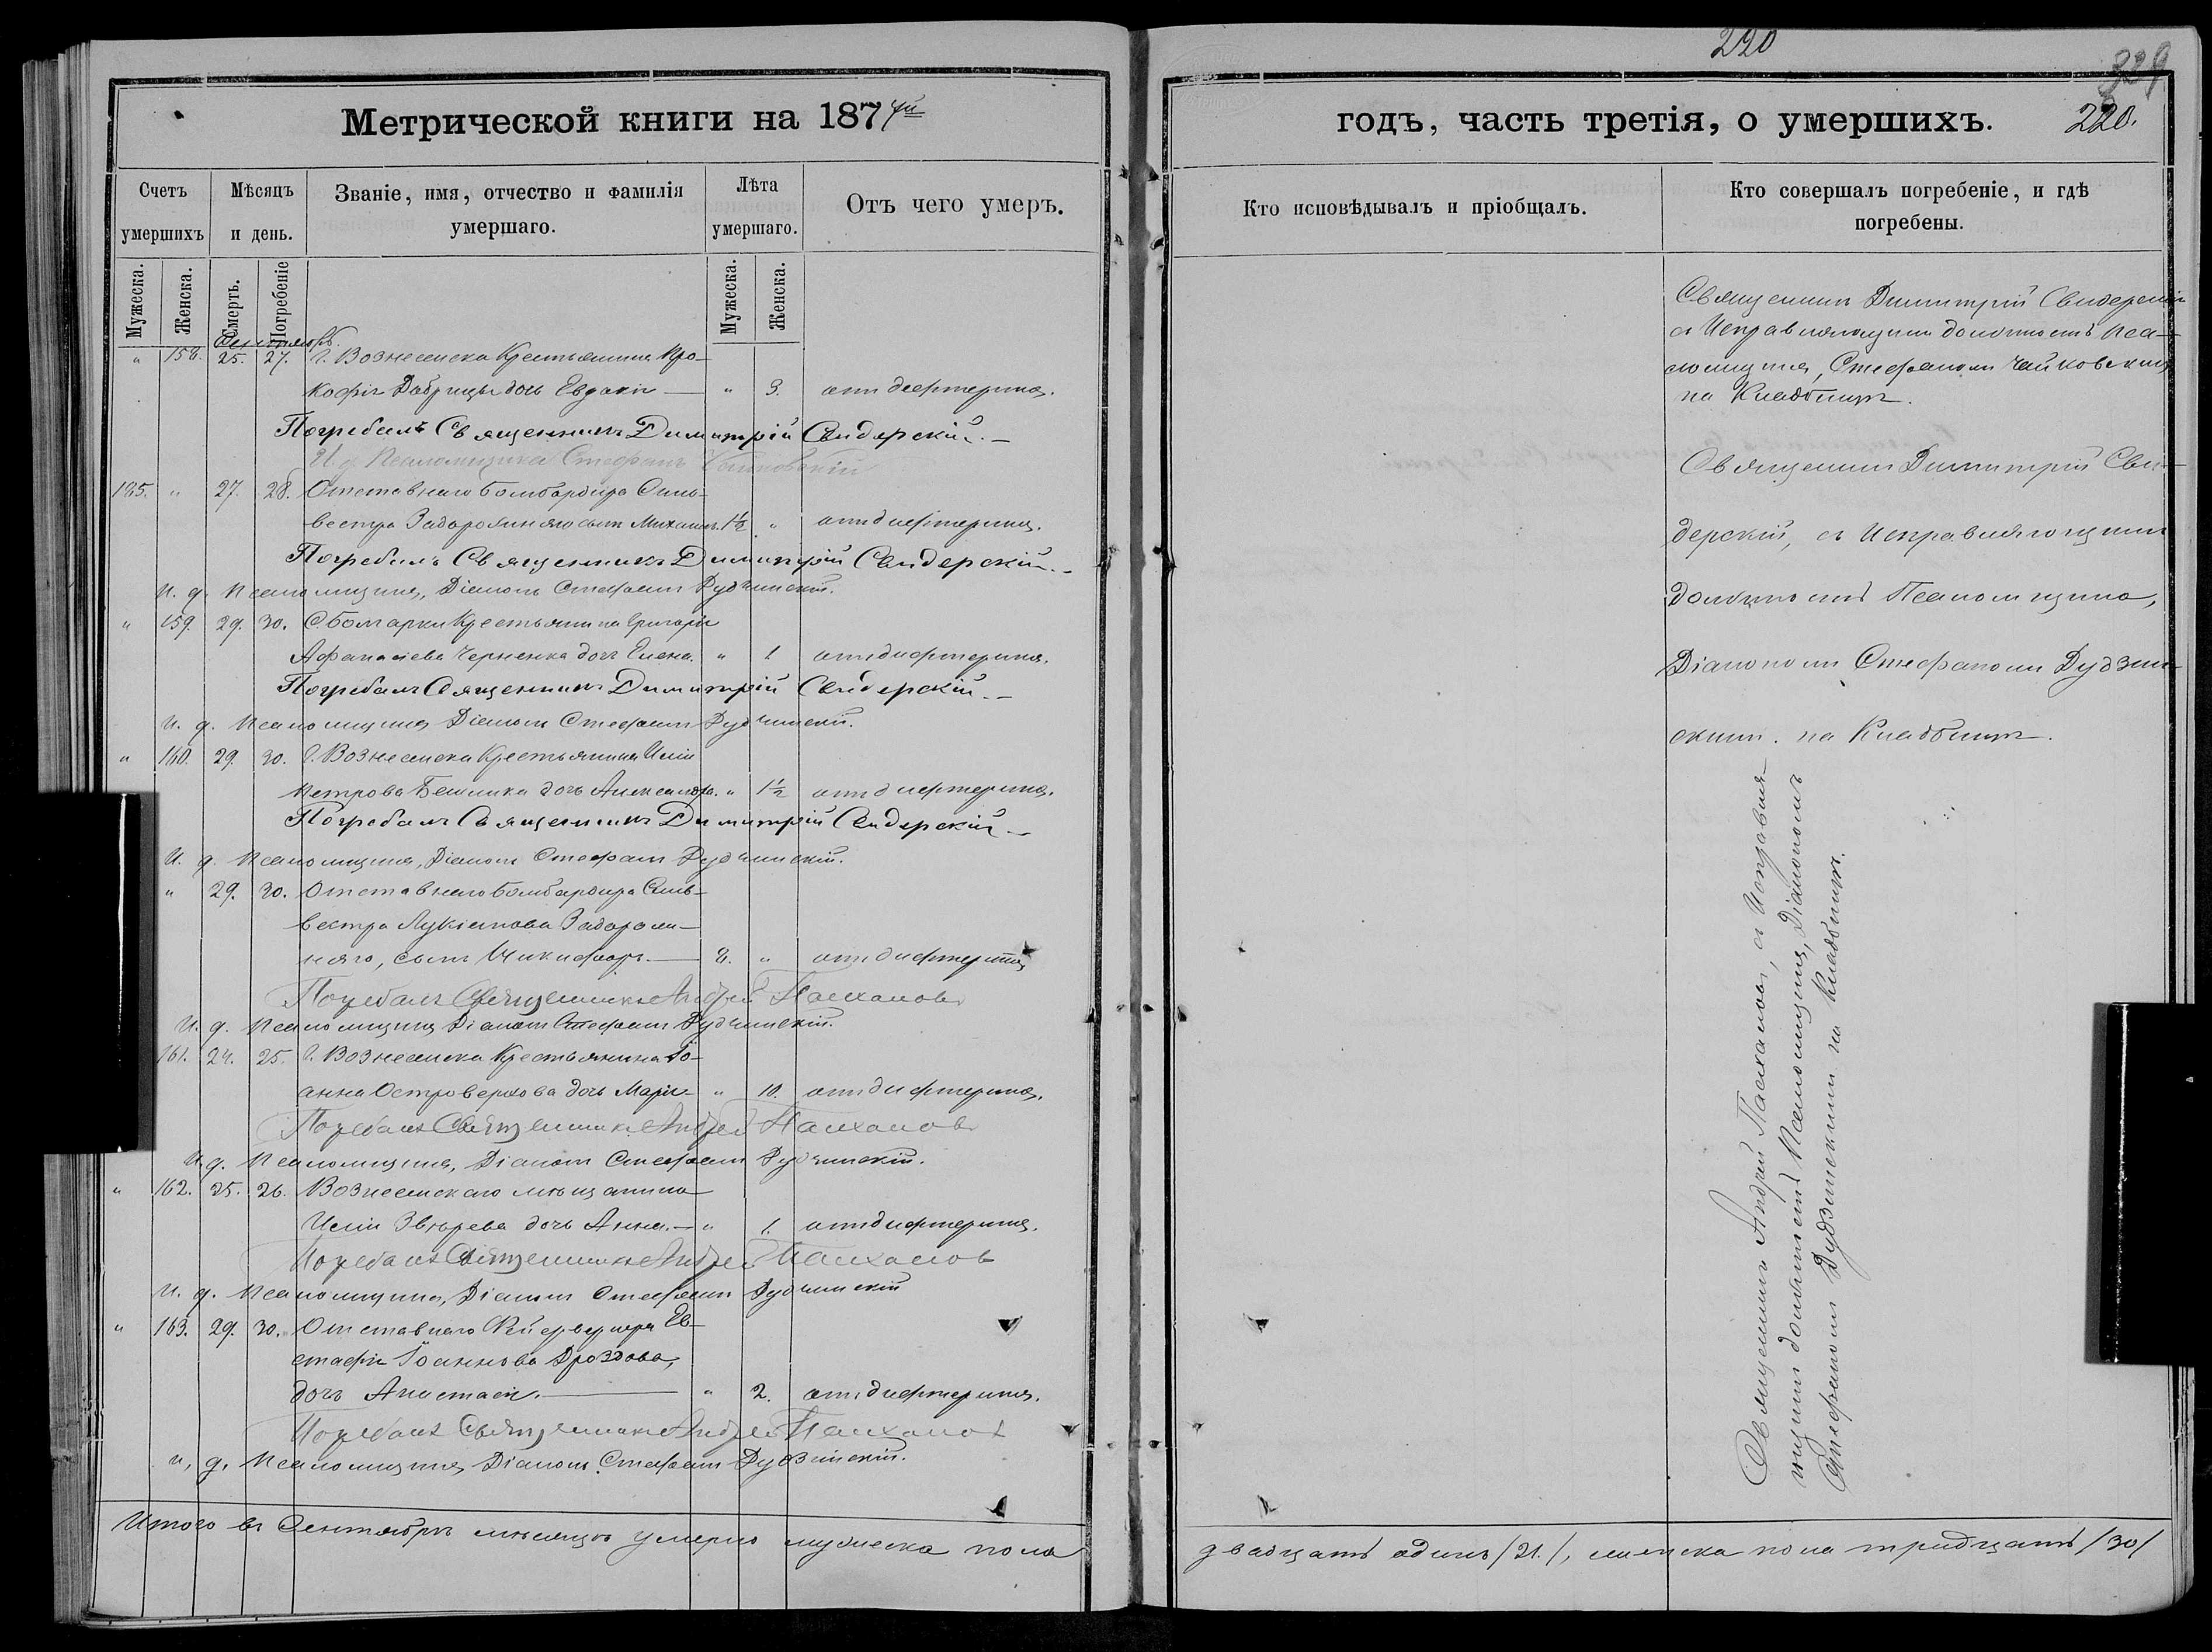 220
329
Метрической книги на 187
годъ, часть третія, о умершихъ.
220.
Счетъ умершихъ
Мѣсяцъ и день.
Званіе, имя, отчество и фамилія умершаго.
Лѣта умершаго.
Отъ чего умеръ.
Кто исповѣдывалъ и пріобщалъ.
Кто совершалъ погребеніе, и гдѣ погребены.
Мужеска.
Женска.
Смерть.
Погребеніе
Мужеска.
Женска.
" 158. 25. 27. Г. Вознесенска Крестьянина Про-
кофія дочь Евдокія — " 3. отъ дифтерита.
Погребалъ Священникъ Димитрій Свидерскій. —
И. д. Псаломщика Стефанъ Чайковскій
185. " 27. 28. Отставнаго бомбардира Силь-
вестра Задорожняго сынъ Михаилъ. 1½ " отъ дифтерита.
Погребалъ Священникъ Димитрій Свидерскій. —
И. д. Псаломщика, Діаконъ Стефанъ Дудзинскій.
" 159. 29. 30. С. Болгарки Крестьянина Григорія
Афанасіева Черненка дочь Елена. " 1 отъ дифтерита.
Погребалъ Священникъ Димитрій Свидерскій. —
И. д. Псаломщика Діаконъ Стефанъ Дудзинскій.
" 160. 29. 30. Г. Вознесенска Крестьянина Иліи
Петрова дочь Александра. " 1½ отъ дифтерита.
Погребалъ Священникъ Димитрій Свидерскій —
И. д. Псаломщика, Діаконъ Стефанъ Дудзинскій.
" 29. 30. Отставнаго бомбардира Силь-
вестра Лукіанова Задорож-
няго, сынъ Никифоръ. — 8. " отъ дифтерита
Погребалъ Священникъ Андрей Пасхаловъ
И. д. Псаломщика Діаконъ Стефанъ Дудзинскій.
161. 24. 25. Г. Вознесенска Крестьянина Іо-
анна Островерхова дочь Марія — " 10. отъ дифтерита.
Погребалъ Священникъ Андрей Пасхаловъ
И. д. Псаломщика, Діаконъ Стефанъ Дудзинскій.
" 162. 25. 26. Вознесенскаго мѣщанина
Иліи Звѣрева дочь Анна. — " 1. отъ дифтерита.
Погребалъ Священникъ Андрей Пасхаловъ
И. д. Псаломщика, Діаконъ Стефанъ Дудзинскій
" 163. 29. 30. Отставнаго Фейерверкера Ев-
стафія Іоаннова Дроздова,
дочь Анастасія. — " 2. отъ дифтерита.
Погребалъ Священникъ Андрей Пасхаловъ
и. д. Псаломщика Діаконъ Стефанъ Дудзинскій.
Итого въ Сентябрѣ мѣсяцѣ умерло мужеска пола
Священникъ Димитрій Свидерскій
съ Исправляющимъ должность Пса-
ломщика, Стефаномъ Чайковскимъ
на Кладбищѣ.
Священникъ Димитрій Сви-
дерскій, съ Исправляющимъ
должность Псаломщика,
Діакономъ Стефаномъ Дудзин-
скимъ. на Кладбищѣ.
Священникъ Андрей Пасхаловъ, съ Исправля-
ющимъ должность Псаломщика, Діакономъ
Стефаномъ Дудзинскимъ на Кладбищѣ.
двадцать одинъ /21./, женска пола тридцать /30/